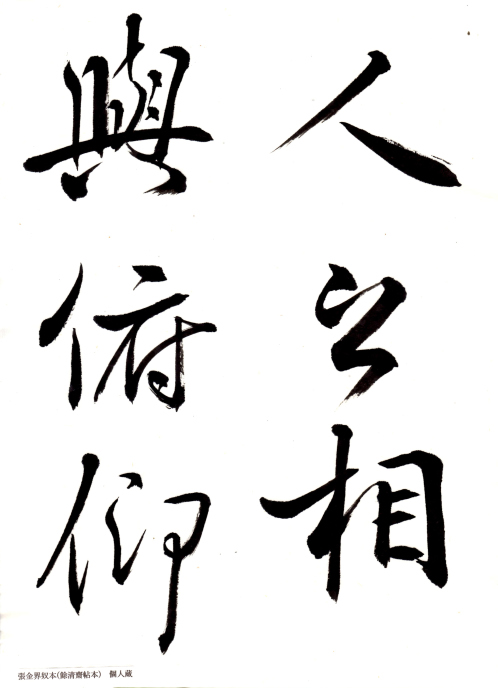 人之相
與俯仰
張金界奴本(餘清齋帖本) 個人蔵